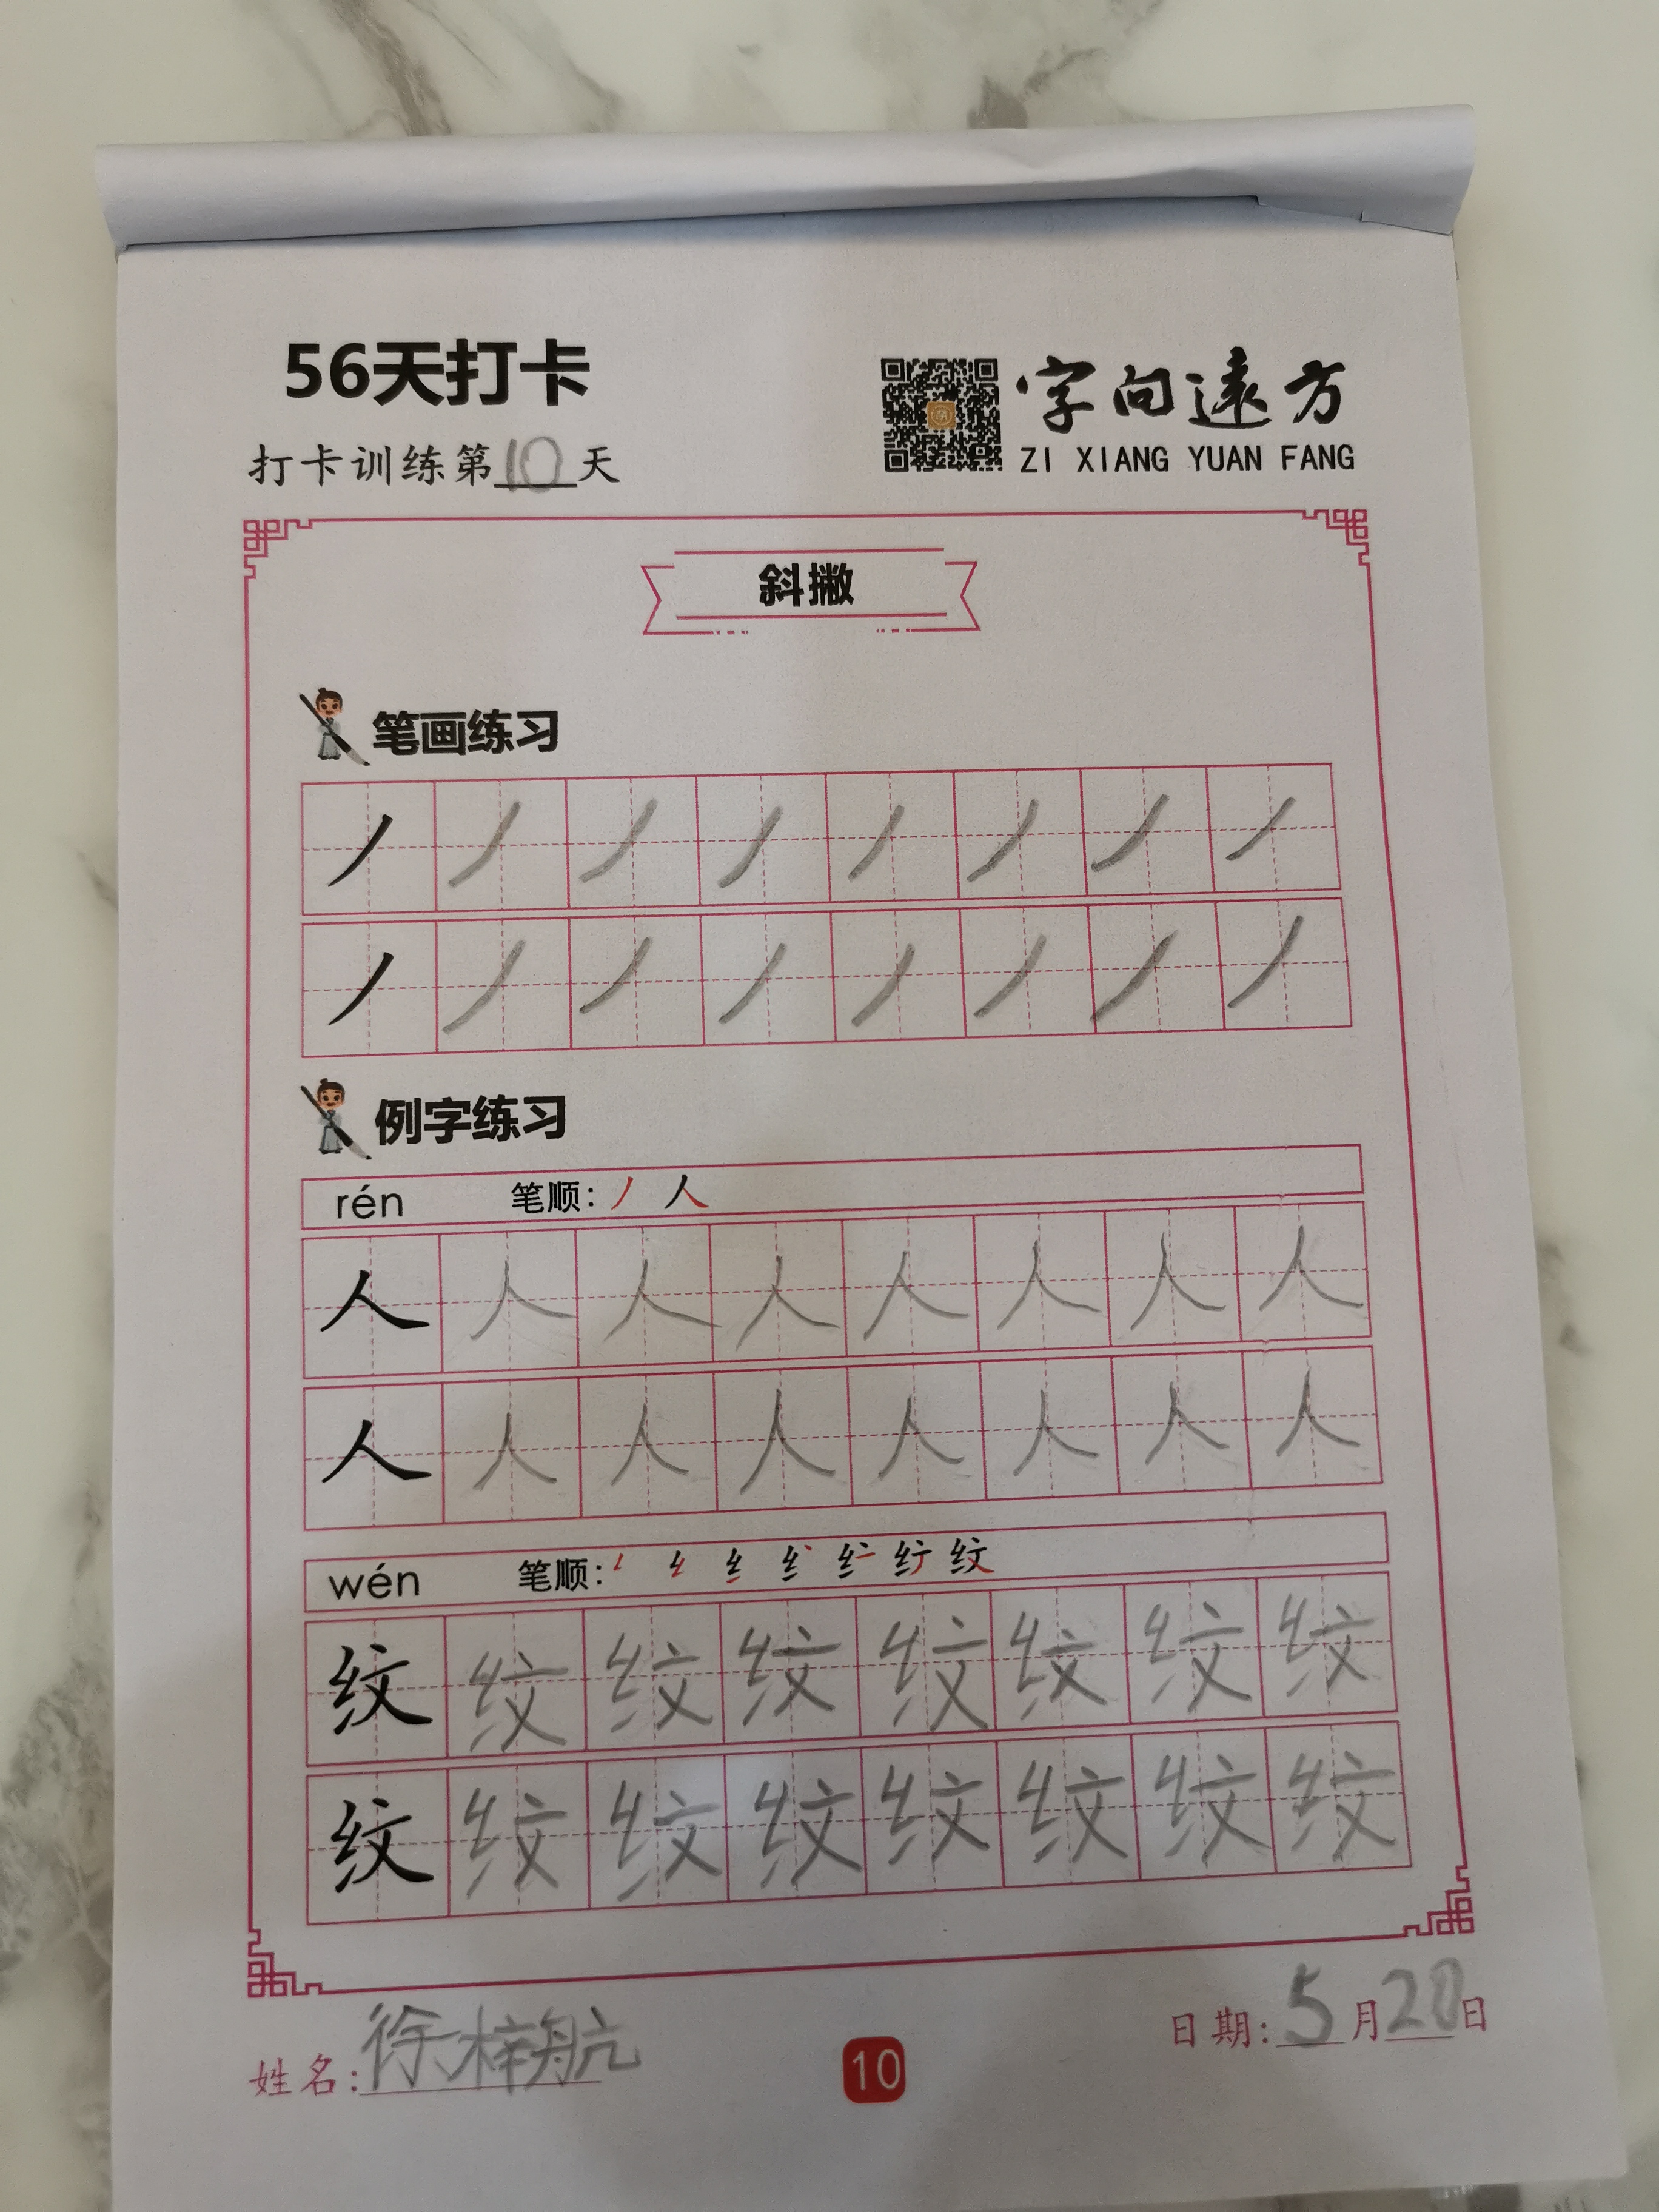 56天打卡
字向遠方
打卡训练第10天
ZI XIANG YUAN FANG
斜撇
笔画练习
丿 丿 丿 丿 丿 丿 丿 丿
丿 丿 丿 丿 丿 丿 丿 丿
例字练习
rén 笔顺: 丿 人
人 人 人 人 人 人 人 人
人 人 人 人 人 人 人 人
wén 笔顺: 纹
纹 纹 纹 纹 纹 纹 纹 纹
纹 纹 纹 纹 纹 纹 纹 纹
姓名:徐梓航
10
日期:5月20日